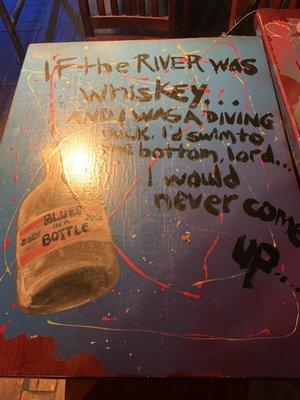 IF the RIVER WAS
WHISKEY...
AND I WAS A DIVING
DUCK. I'd SWIM TO
the bottom, lord...
I would
never come
up...
BLUES
IN A
BOTTLE